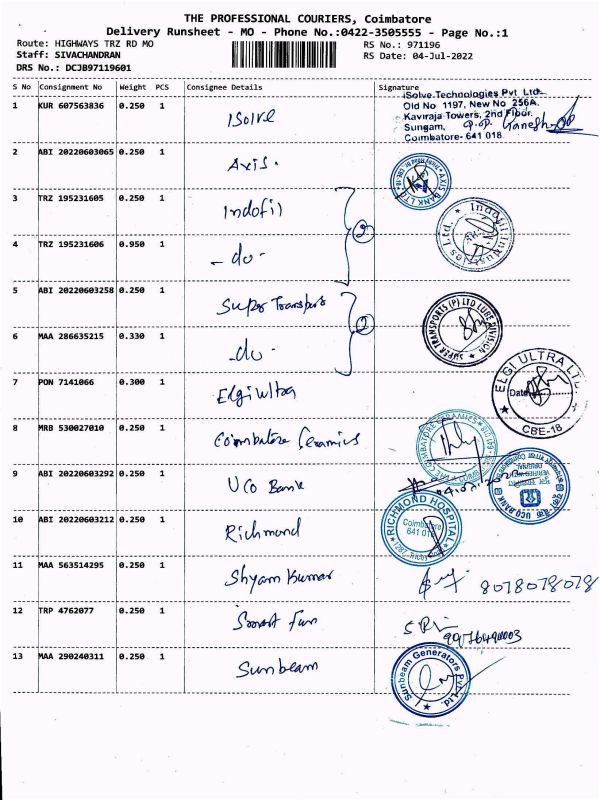 THE PROFESSIONAL COURIERS, Coimbatore
Delivery Runsheet - MO - Phone No.:0422-3505555 - Page No.:1
Route: HIGHWAYS TRZ RD MO
RS No.: 971196
Staff: SIVACHANDRAN
RS Date: 04-Jul-2022
DRS No.: DCJB97119601
S No Consignment No Weight PCS Consignee Details Signature
1 KUR 607563836 0.250 1 Isolve
iSolve Technologies Pvt Ltd
Old No 1197, New No 256A,
Kaviraja Towers, 2nd Floor,
Sungam,
Coimbatore- 641 018
P.P. Ganesh
2 ABI 20220603065 0.250 1 Axis.
AXIS BANK LTD
3 TRZ 195231605 0.250 1 Indofil
2
Indofil Industries Ltd.
4 TRZ 195231606 0.950 1 -do-
5 ABI 20220603258 0.250 1 Super Transports
2
SUPER TRANSPORTS (P) LTD LUBE DIVISION
6 MAA 286635215 0.330 1 -do-
7 PON 7141066 0.300 1 Elgi Ultra
ELGI ULTRA LTD.
Date
CBE-18
8 MRB 530027010 0.250 1 Coimbatore Ceramics
COIMBATORE CERAMICS
9 ABI 20220603292 0.250 1 UCO Bank
UCO BANK
10 ABI 20220603212 0.250 1 Richmond
RICHMOND HOSPITAL
Coimbatore
641 018
11 MAA 563514295 0.250 1 Shyam Kumar
8078078078
12 TRP 4762077 0.250 1 Smart Fun
13 MAA 290240311 0.250 1 Sunbeam
Sunbeam Generators Pvt. Ltd.